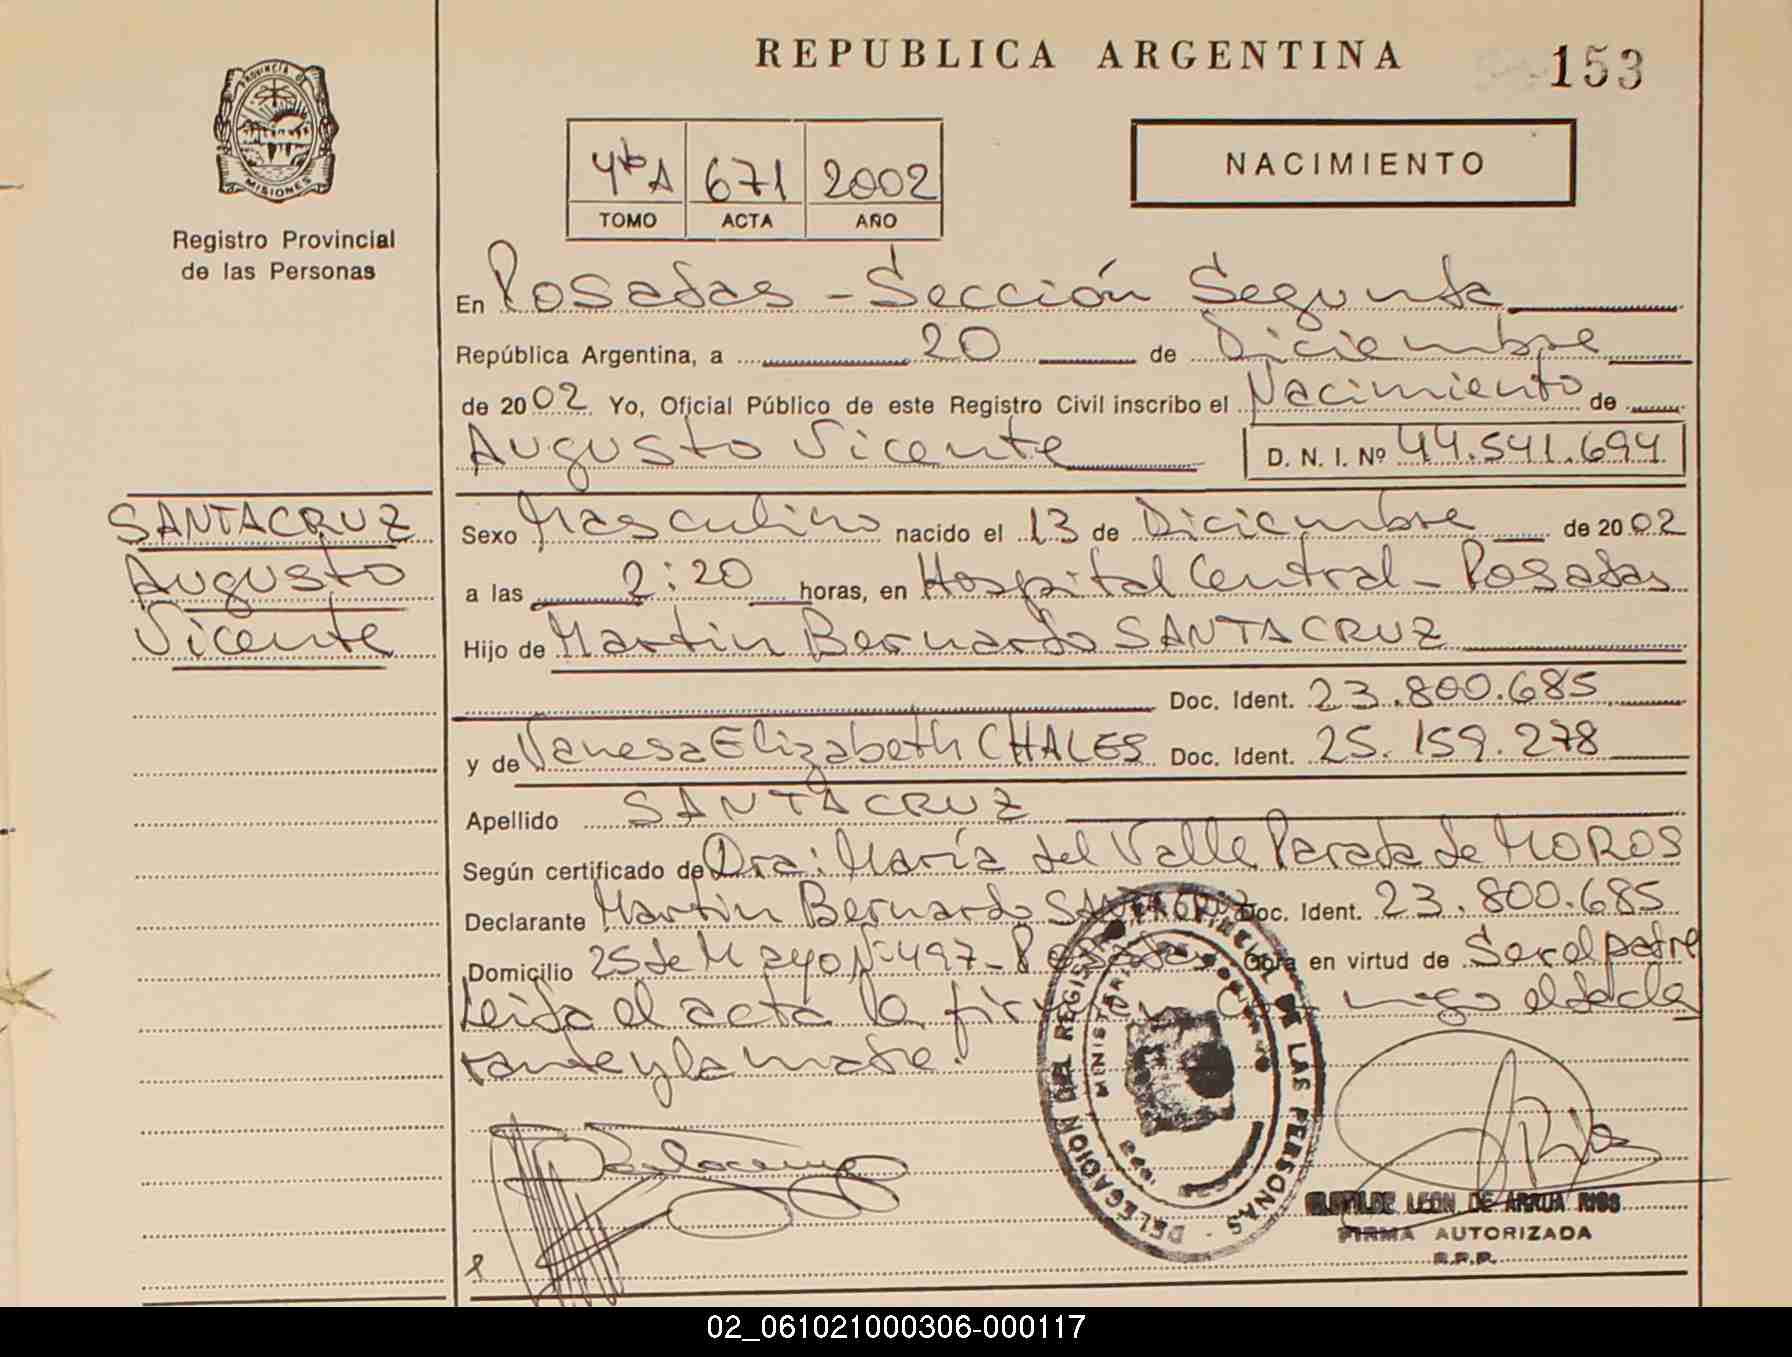 REPUBLICA ARGENTINA
153
PROVINCIA DE
MISIONES
Registro Provincial
de las Personas
4tº A 671 2002
TOMO ACTA AÑO
NACIMIENTO
En Posadas - Sección Segunda
República Argentina, a 20 de Diciembre
de 2002 Yo, Oficial Público de este Registro Civil inscribo el Nacimiento de
Augusto Vicente D. N. I. Nº 44.541.694
SANTACRUZ
Augusto
Vicente
Sexo Masculino nacido el 13 de Diciembre de 2002
a las 2:20 horas, en Hospital Central - Posadas
Hijo de Martin Bernardo SANTACRUZ
Doc. Ident. 23.800.685
y de Vanesa Elizabeth CHALES Doc. Ident. 25.159.278
Apellido SANTACRUZ
Según certificado de Dra: María del Valle Parada de MOROS
Declarante Martin Bernardo SANTACRUZ Doc. Ident. 23.800.685
Domicilio 25 de Mayo Nº 497 - Posadas Obra en virtud de Ser el padre
Leida el acta la firman conmigo el decla
rante y la madre.
DELEGACION DEL REGISTRO PROVINCIAL DE LAS PERSONAS
MINISTERIO
CLOTILDE LEON DE ARRUA RIOS
FIRMA AUTORIZADA
R.P.P.
02_061021000306-000117